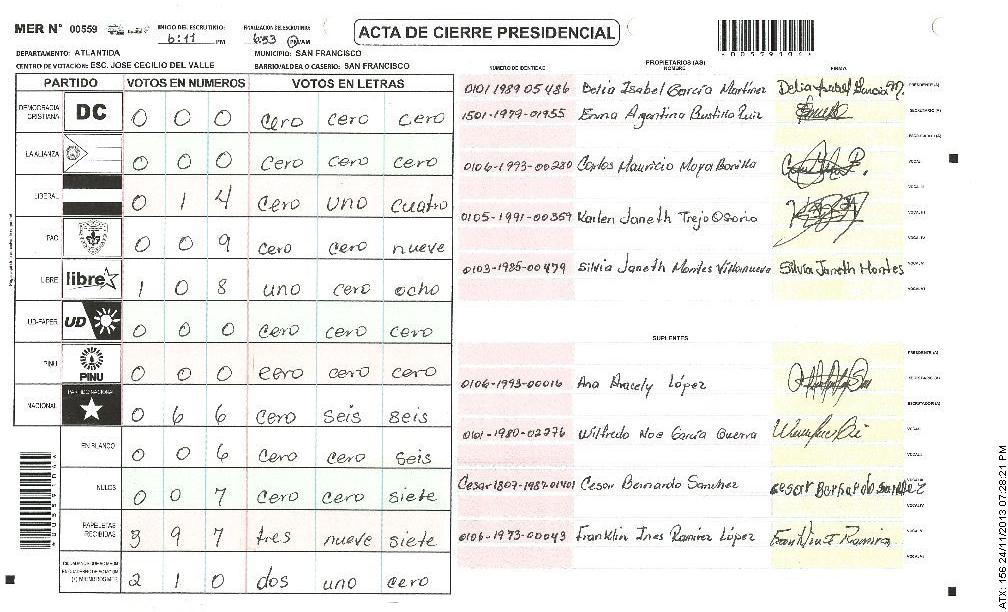 MER N° 00559
INICIO DEL ESCRUTINIO: 6:11 PM
FINALIZACION DEL ESCRUTINIO: 6:53 PM/AM
ACTA DE CIERRE PRESIDENCIAL
DEPARTAMENTO: ATLANTIDA
MUNICIPIO: SAN FRANCISCO
CENTRO DE VOTACION: ESC. JOSE CECILIO DEL VALLE
BARRIO/ALDEA O CASERIO: SAN FRANCISCO
PARTIDO VOTOS EN NUMEROS VOTOS EN LETRAS
DEMOCRACIA CRISTIANA DC 0 0 0 cero cero cero
LA ALIANZA 0 0 0 cero cero cero
LIBERAL 0 1 4 cero uno cuatro
PAC 0 0 9 cero cero nueve
LIBRE libre 1 0 8 uno cero ocho
UD-FAPER UD 0 0 0 cero cero cero
PINU PINU 0 0 0 cero cero cero
NACIONAL PARTIDO NACIONAL 0 6 6 cero seis seis
EN BLANCO 0 0 6 cero cero seis
NULOS 0 0 7 cero cero siete
PAPELETAS RECIBIDAS 3 9 7 tres nueve siete
2 1 0 dos uno cero
PROPIETARIOS (AS)
NUMERO DE IDENTIDAD NOMBRE FIRMA
0101 1989 05486 Delia Isabel García Martínez Delia Isabel García M. PRESIDENTE (A)
1501-1979-01955 Enma Argentina Bustillo Ruiz SECRETARIO (A)
0106-1993-00280 Carlos Mauricio Moya Bonilla VOCAL I
0105-1991-00369 Karlen Janeth Trejo Osorio VOCAL III
0103-1985-00479 Silvia Janeth Montes Villanueva Silvia Janeth Montes VOCAL V
VOCAL VI
SUPLENTES
PRESIDENTE (A)
0106-1993-00016 Ana Aracely López SECRETARIO (A)
0101-1980-02276 Wilfredo Noe García Guerra VOCAL I
Cesar 1807-1987-01401 Cesar Bernardo Sanchez Cesar Bernardo Sanchez
0106-1973-00043 Franklin Ines Ramirez López Franklin I Ramirez
ATX: 156 24/11/2013 07:28:21 PM